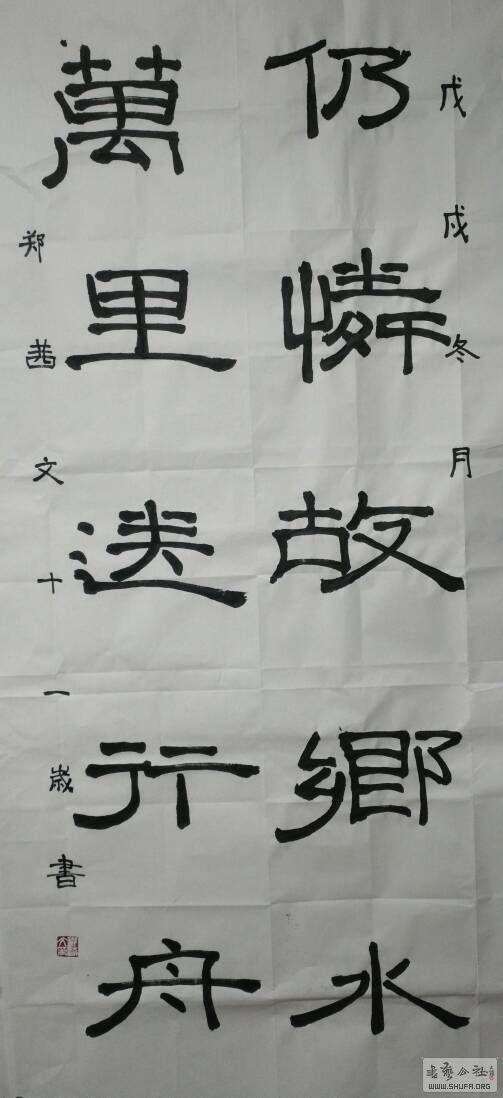 戊戌冬月
仍憐故鄉水
萬里送行舟
郑茜文十一歲書
WWW.SHUFA.ORG